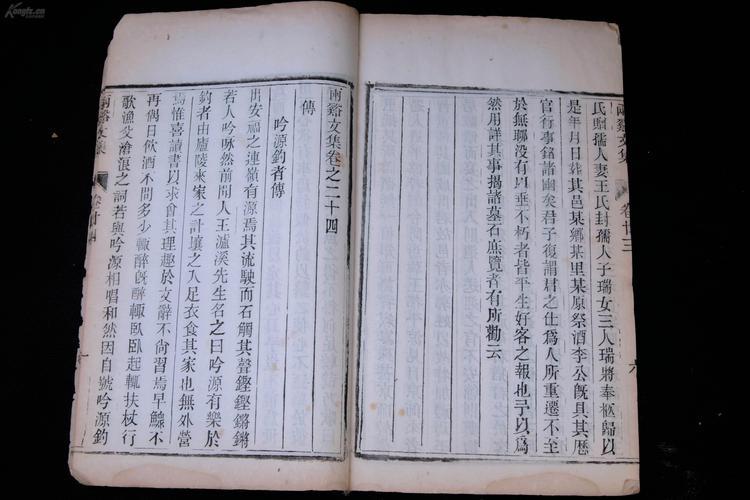 Kongfz.cn
兩谿文集
卷廿三
六
氏贈孺人妻王氏封孺人子瑞女三人瑞將奉柩歸以
是年月日葬其邑某鄉某里某原祭酒李公旣具其歷
官行事銘諸幽矣君子復謂君之仕爲人所重遷不至
於無聊没有以垂不朽者皆平生好客之報也予以爲
然用詳其事揭諸墓石庶覽者有所勸云
兩谿文集卷之二十四
傳
吟源釣者傳
出安福之連嶺有源焉其流駛而石觸其聲鏗鏗鏘鏘
若人吟咏然前聞人王瀘溪先生名之曰吟源有樂於
釣者由廬陵來家之計壤之入足衣食其家也無外營
焉惟喜讀書以求會其理趣於文辭不尚習焉早鰥不
再偶日飲酒不問多少輒醉旣醉輒臥臥起輒扶杖行
歌漁父滄浪之詞若與吟源相唱和然因自號吟源釣
兩谿文集
卷廿四